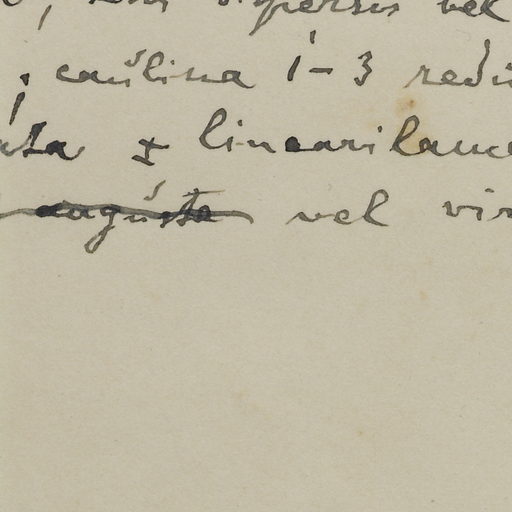 dispersis vel
; caulina 1-3 redu
ata ± linearilance
angusta vel vir